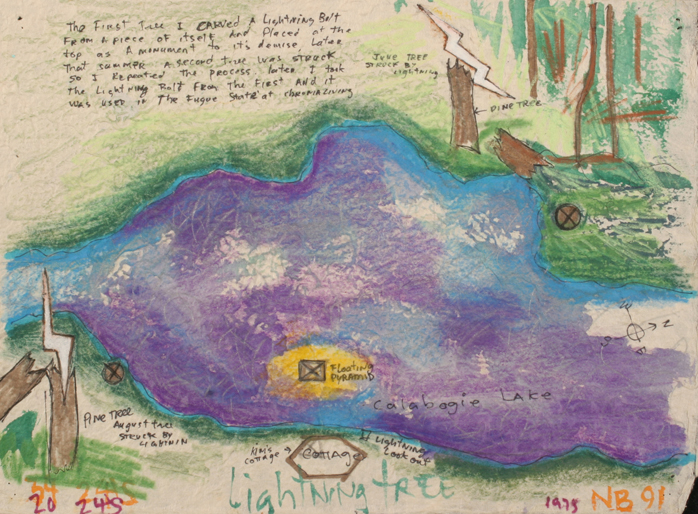 The First Tree I CARVED A Lightning Bolt
From A piece of itself And Placed at the
top as A monument to it's demise Later
That summer A second tree was struck
so I Repeated the process, later I took
the Lightning Bolt From The First And it
was used in The Fugue State at chromaliving
June TREE
STRUCK BY
Lightning
PINE TREE
N
Floating
Pyramid
Calabogie Lake
PINE TREE
August tree
STRUCK BY
LIGHTNIN
Cottage
Cottage
Lightning
Look out
Lightning tree
20 24S
1975 NB 91